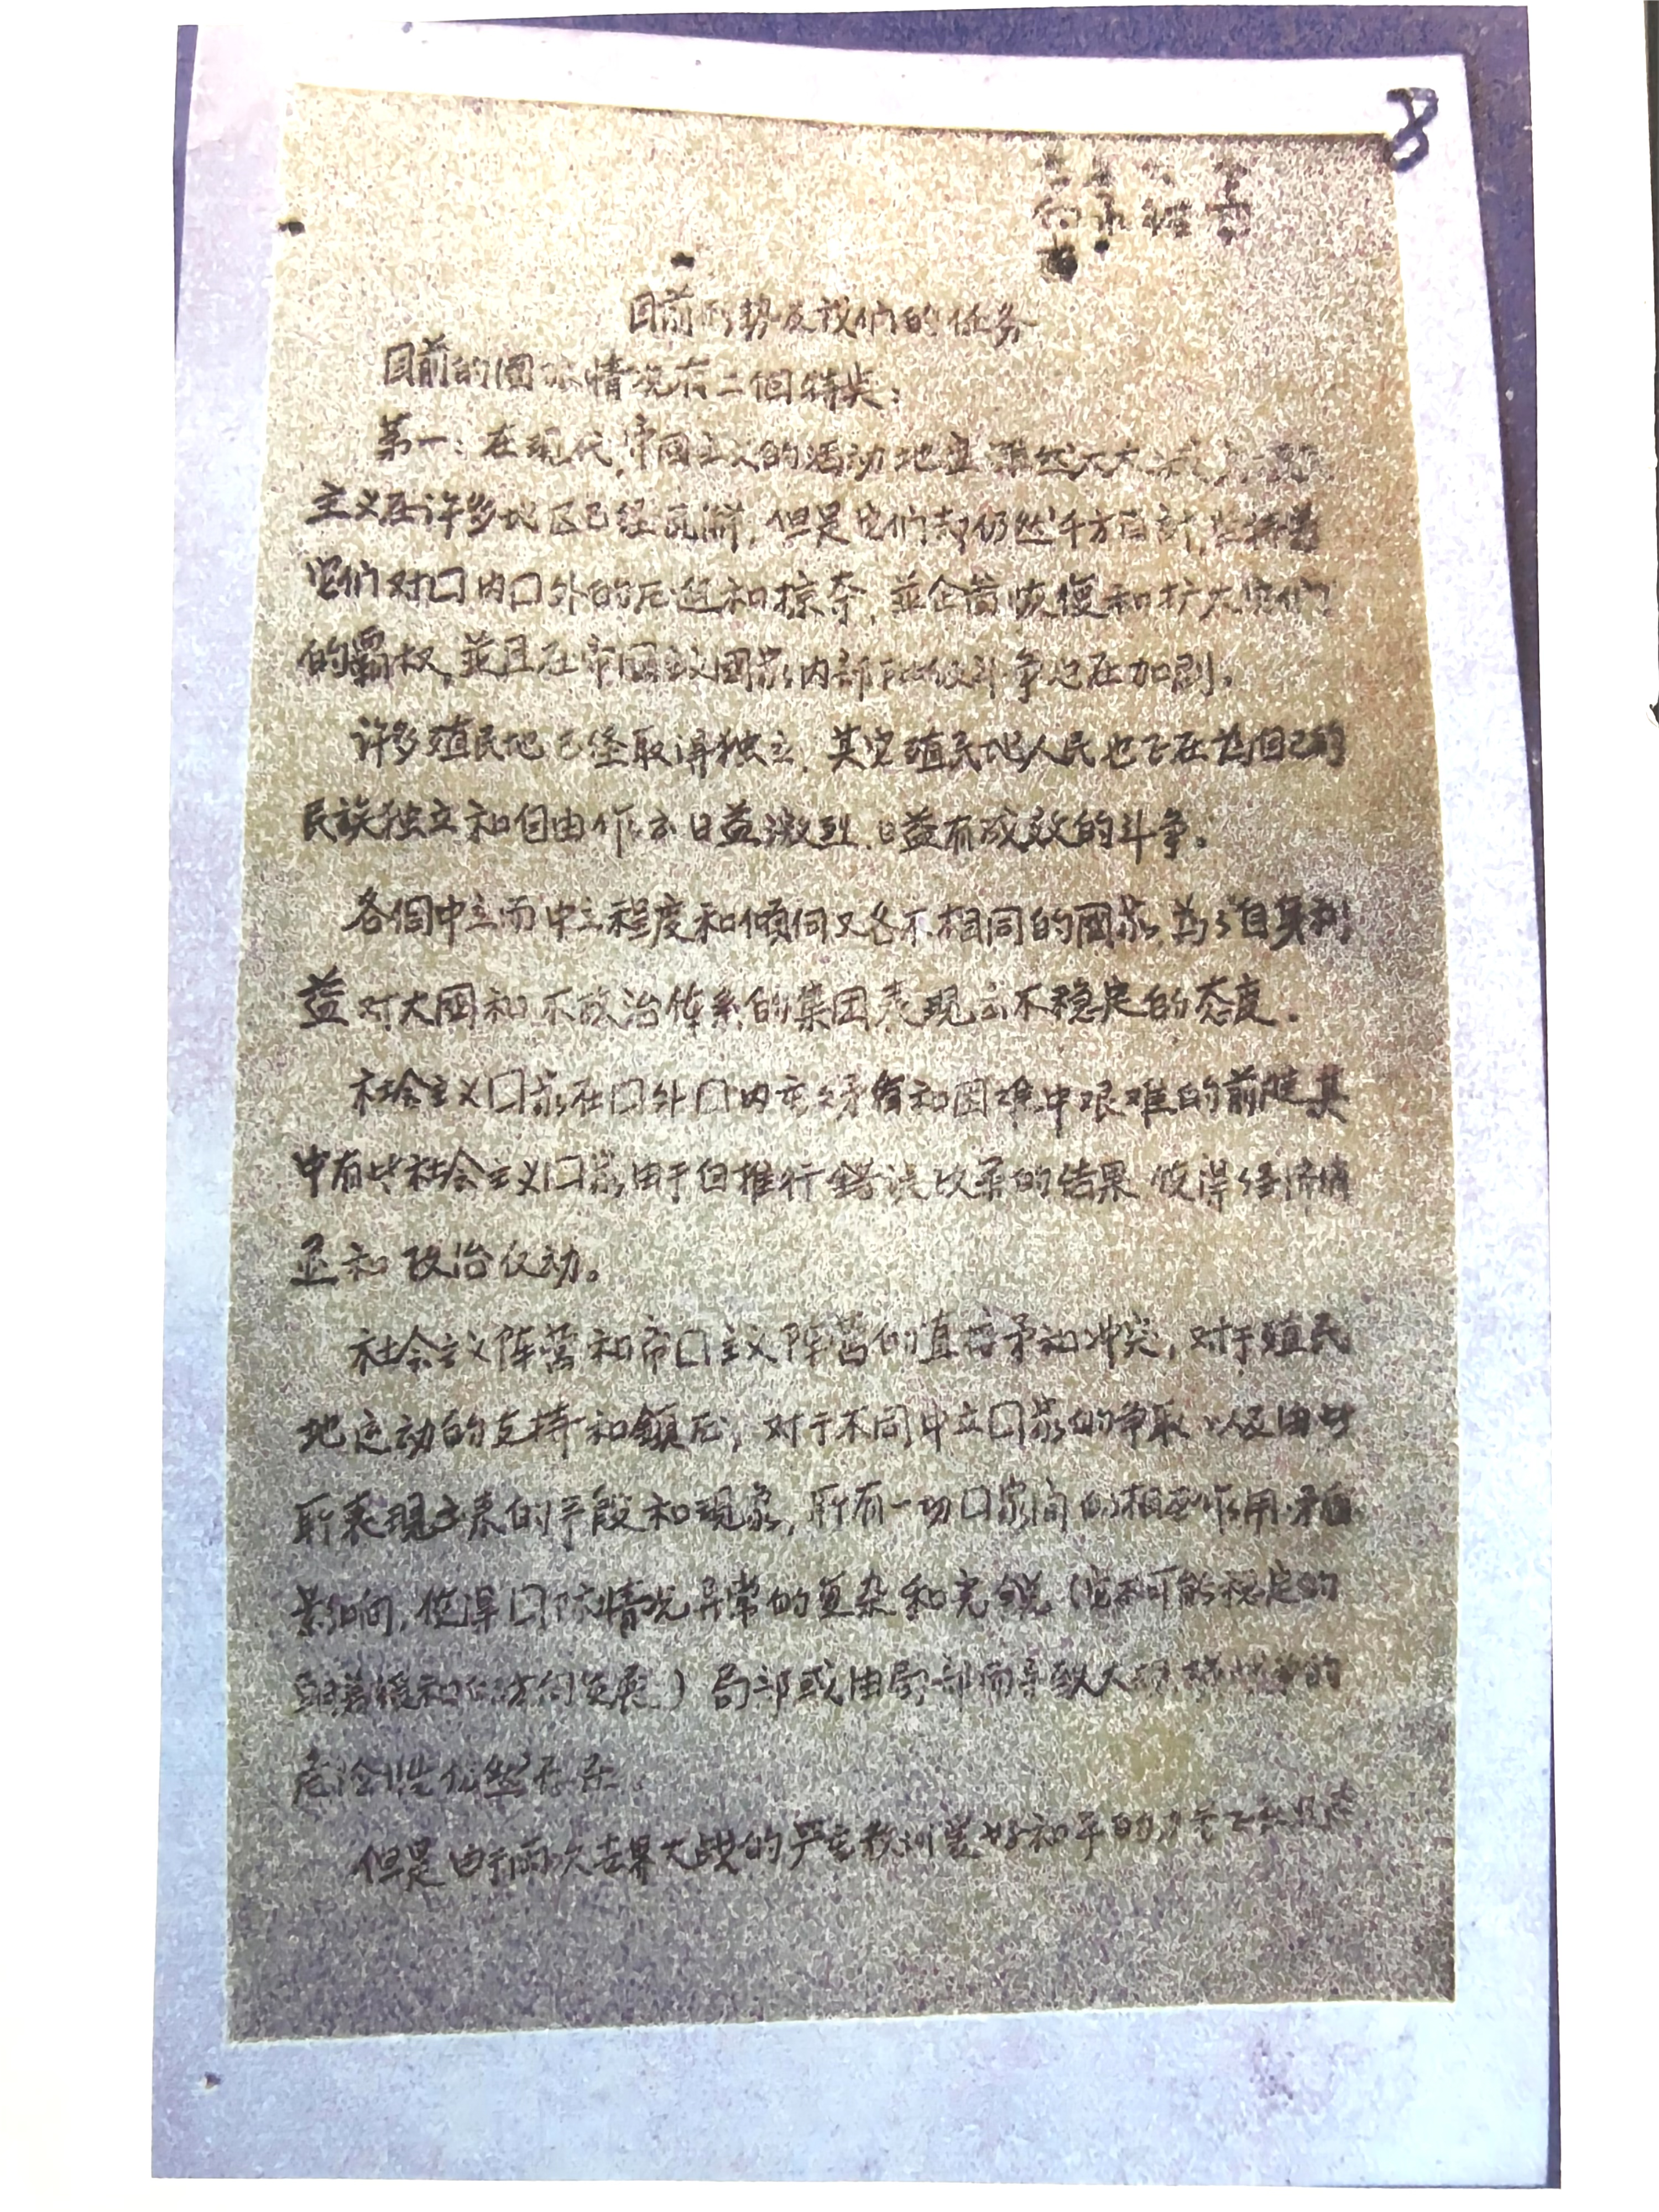 8
目前形势及我们的任务
目前的國际情况有二個特点:
第一:在现代,帝国主义的活动地盘虽然大大
主义在许多地区已经瓦解,但是它们却仍然千方百計,
它们对口内口外的压迫和掠夺,並企啚恢復和扩大它们
的霸权,並且在帝国主义國家内部阶级斗争也在加剧。
许多殖民地已经取得独立,其它殖民地人民也正在为自己的
民族独立和自由作出日益激烈,日益有成效的斗争。
各個中立而中立程度和傾向又各不相同的國家,為了自身利
益对大國和不政治体系的集团表现出不稳定的态度。
社会主义口家在口外口内矛盾和困难中艰难的前进其
中有些社会主义口家由于但推行错误改革的结果 使得经济
和政治伩动。
社会主义阵营和帝口主义阵营的直接矛和冲突,对于殖民
地运动的支持和鎮压,对于不同中立口家的争取以及由此
所表现出来的手段和现象,所有一切口家间的相互作用矛盾
影响,使得口际情况异常的复杂和尖锐(它不可能稳定的
朝着缓和的方向发展)局部或由局部而导致大规模战争的
危险性仍然存在。
但是由于两次世界大战的严重教训爱好和平的力量